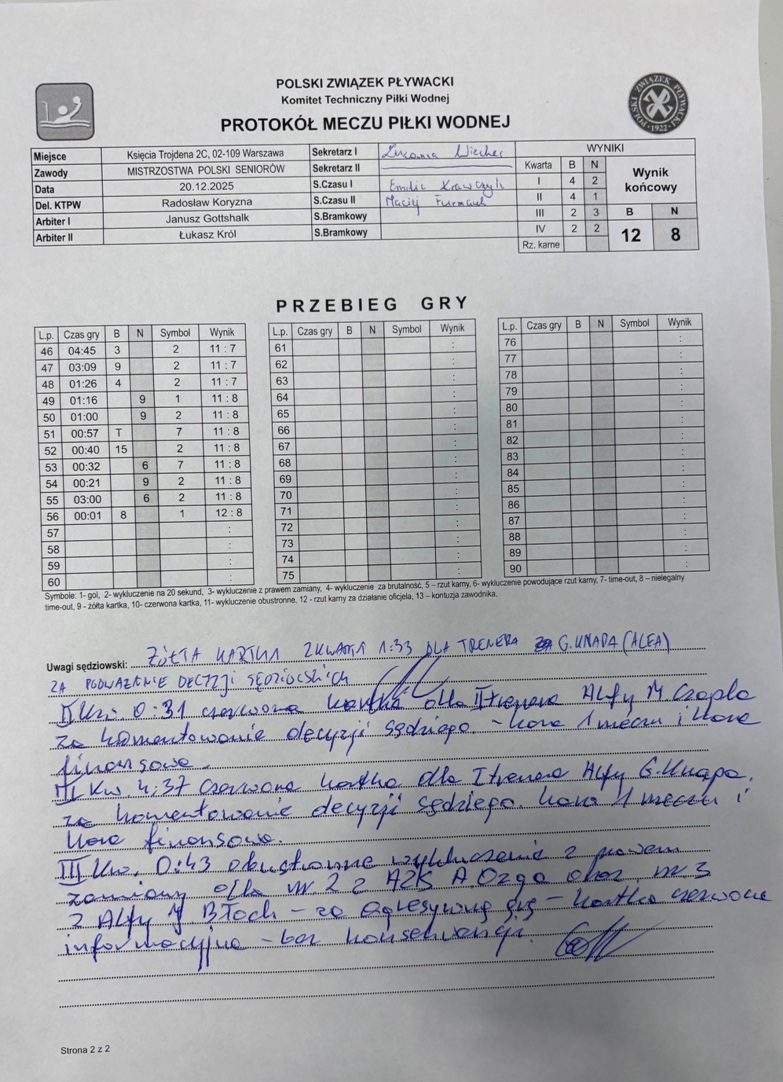 POLSKI ZWIĄZEK PŁYWACKI
Komitet Techniczny Piłki Wodnej
PROTOKÓŁ MECZU PIŁKI WODNEJ
POLSKI ZWIĄZEK PŁYWACKI
1922
Miejsce Księcia Trojdena 2C, 02-109 Warszawa Sekretarz I
Zawody MISTRZOSTWA POLSKI SENIORÓW Sekretarz II
Data 20.12.2025 S.Czasu I Emilia Krawczyk
Del. KTPW Radosław Koryzna S.Czasu II Maciej Furmaniuk
Arbiter I Janusz Gottshalk S.Bramkowy
Arbiter II Łukasz Król S.Bramkowy
WYNIKI
Kwarta B N Wynik końcowy
I 4 2
II 4 1
III 2 3 B N
IV 2 2 12 8
Rz. karne
PRZEBIEG GRY
L.p. Czas gry B N Symbol Wynik
46 04:45 3 2 11 : 7
47 03:09 9 2 11 : 7
48 01:26 4 2 11 : 7
49 01:16 9 1 11 : 8
50 01:00 9 2 11 : 8
51 00:57 T 7 11 : 8
52 00:40 15 2 11 : 8
53 00:32 6 7 11 : 8
54 00:21 9 2 11 : 8
55 03:00 6 2 11 : 8
56 00:01 8 1 12 : 8
57 :
58 :
59 :
60 :
L.p. Czas gry B N Symbol Wynik
61 :
62 :
63 :
64 :
65 :
66 :
67 :
68 :
69 :
70 :
71 :
72 :
73 :
74 :
75 :
L.p. Czas gry B N Symbol Wynik
76 :
77 :
78 :
79 :
80 :
81 :
82 :
83 :
84 :
85 :
86 :
87 :
88 :
89 :
90 :
Symbole: 1- gol, 2- wykluczenie na 20 sekund, 3- wykluczenie z prawem zamiany, 4- wykluczenie za brutalność, 5 – rzut karny, 6- wykluczenie powodujące rzut karny, 7- time-out, 8 – nielegalny
time-out, 9 - żółta kartka, 10- czerwona kartka, 11- wykluczenie obustronne, 12 - rzut karny za działanie oficjela, 13 – kontuzja zawodnika.
Uwagi sędziowski: ŻÓŁTA KARTKA 2 KWARTA 1:33 DLA TRENERA G. KNAPA (ALFA)
ZA PODWAŻANIE DECYZJI SĘDZIOWSKICH
II kw. 0:31 czerwona kartka dla II trenera Alfy M. Czapla
za komentowanie decyzji sędziego. - kara 1 meczu i kara
finansowa.
III kw. 4:37 czerwona kartka dla I trenera Alfy G. Knapa.
za komentowanie decyzji sędziego. kara 1 meczu i
kara finansowa.
III kw. 0:43 obustronne wykluczenie z prawem
zamiany dla nr. 2 z AZK A. Ozga oraz nr. 3
z Alfy Błoch – za agresywną grę – kartka czerwona
informacyjna – bez konsekwencji.
Strona 2 z 2